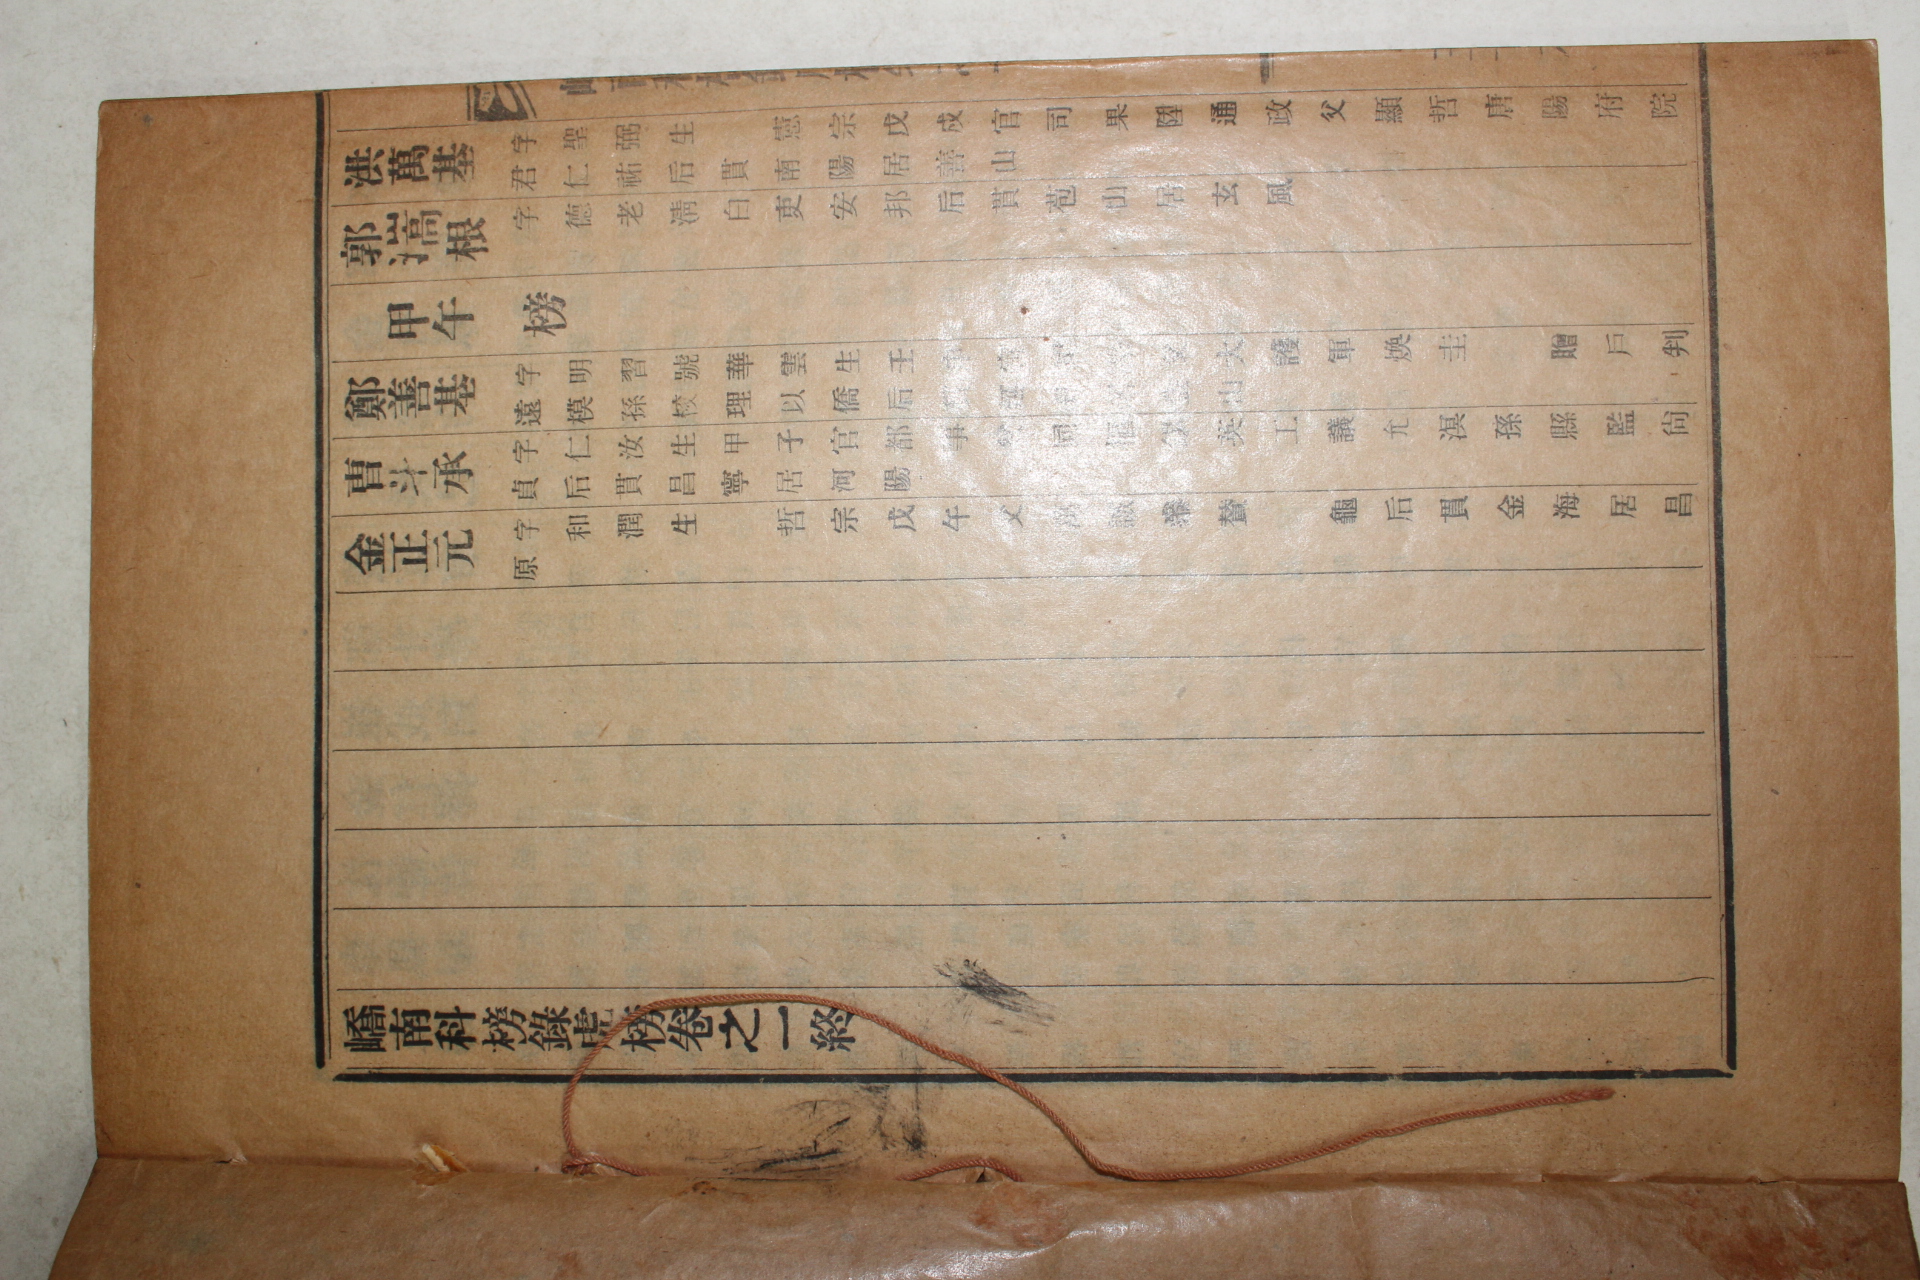 洪萬基 字聖弼生憲宗戊戌官司果陞通政父顯哲唐陽府院
君仁祐后貫南陽居善山
郭 根 字德老淸白吏安邦后貫苞山居玄風
甲午榜
鄭善基 字明習號華雲生壬 大護軍煥圭贈戶判
遠模孫校理以僑后
曺斗承 字仁汝生甲子官都事父 工議允淏孫縣監尙
貞后貫昌寧居河陽
金正元 字和潤生哲宗戊午父 贊 龜后貫金海居昌
原
嶠南科榜錄虎榜卷之一終